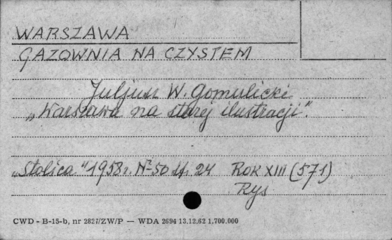 WARSZAWA
GAZOWNIA NA CZYSTEM
Juljusz W. Gomulicki
„Warszawa na starej ilustracji".
„Stolica" 1958 r. Nº 50 str. 24 ROK XIII (571)
Rys
CWD - B-15-b, nr 2827/ZW/P — WDA 2694 13.12.62 1,700.000